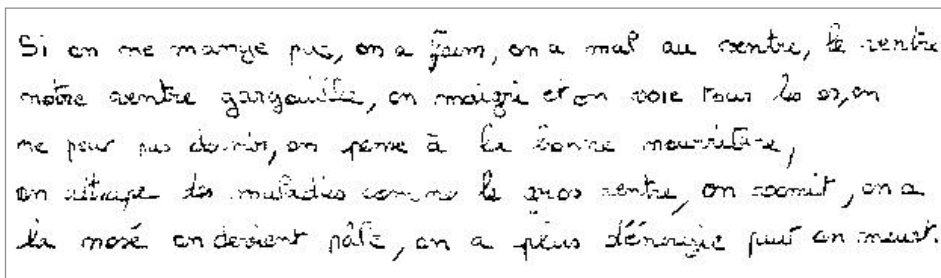 Si on ne mange pas, on a faim, on a mal au ventre, le ventre
notre ventre gargouille, on maigri et on voie tous les os, on
ne peut pas dormir, on pense à la bonne nourriture,
on attrape des maladies comme le gros ventre, on vomit, on a
la nosé on devient pâle, on a plus d'énergie puis on meurt.